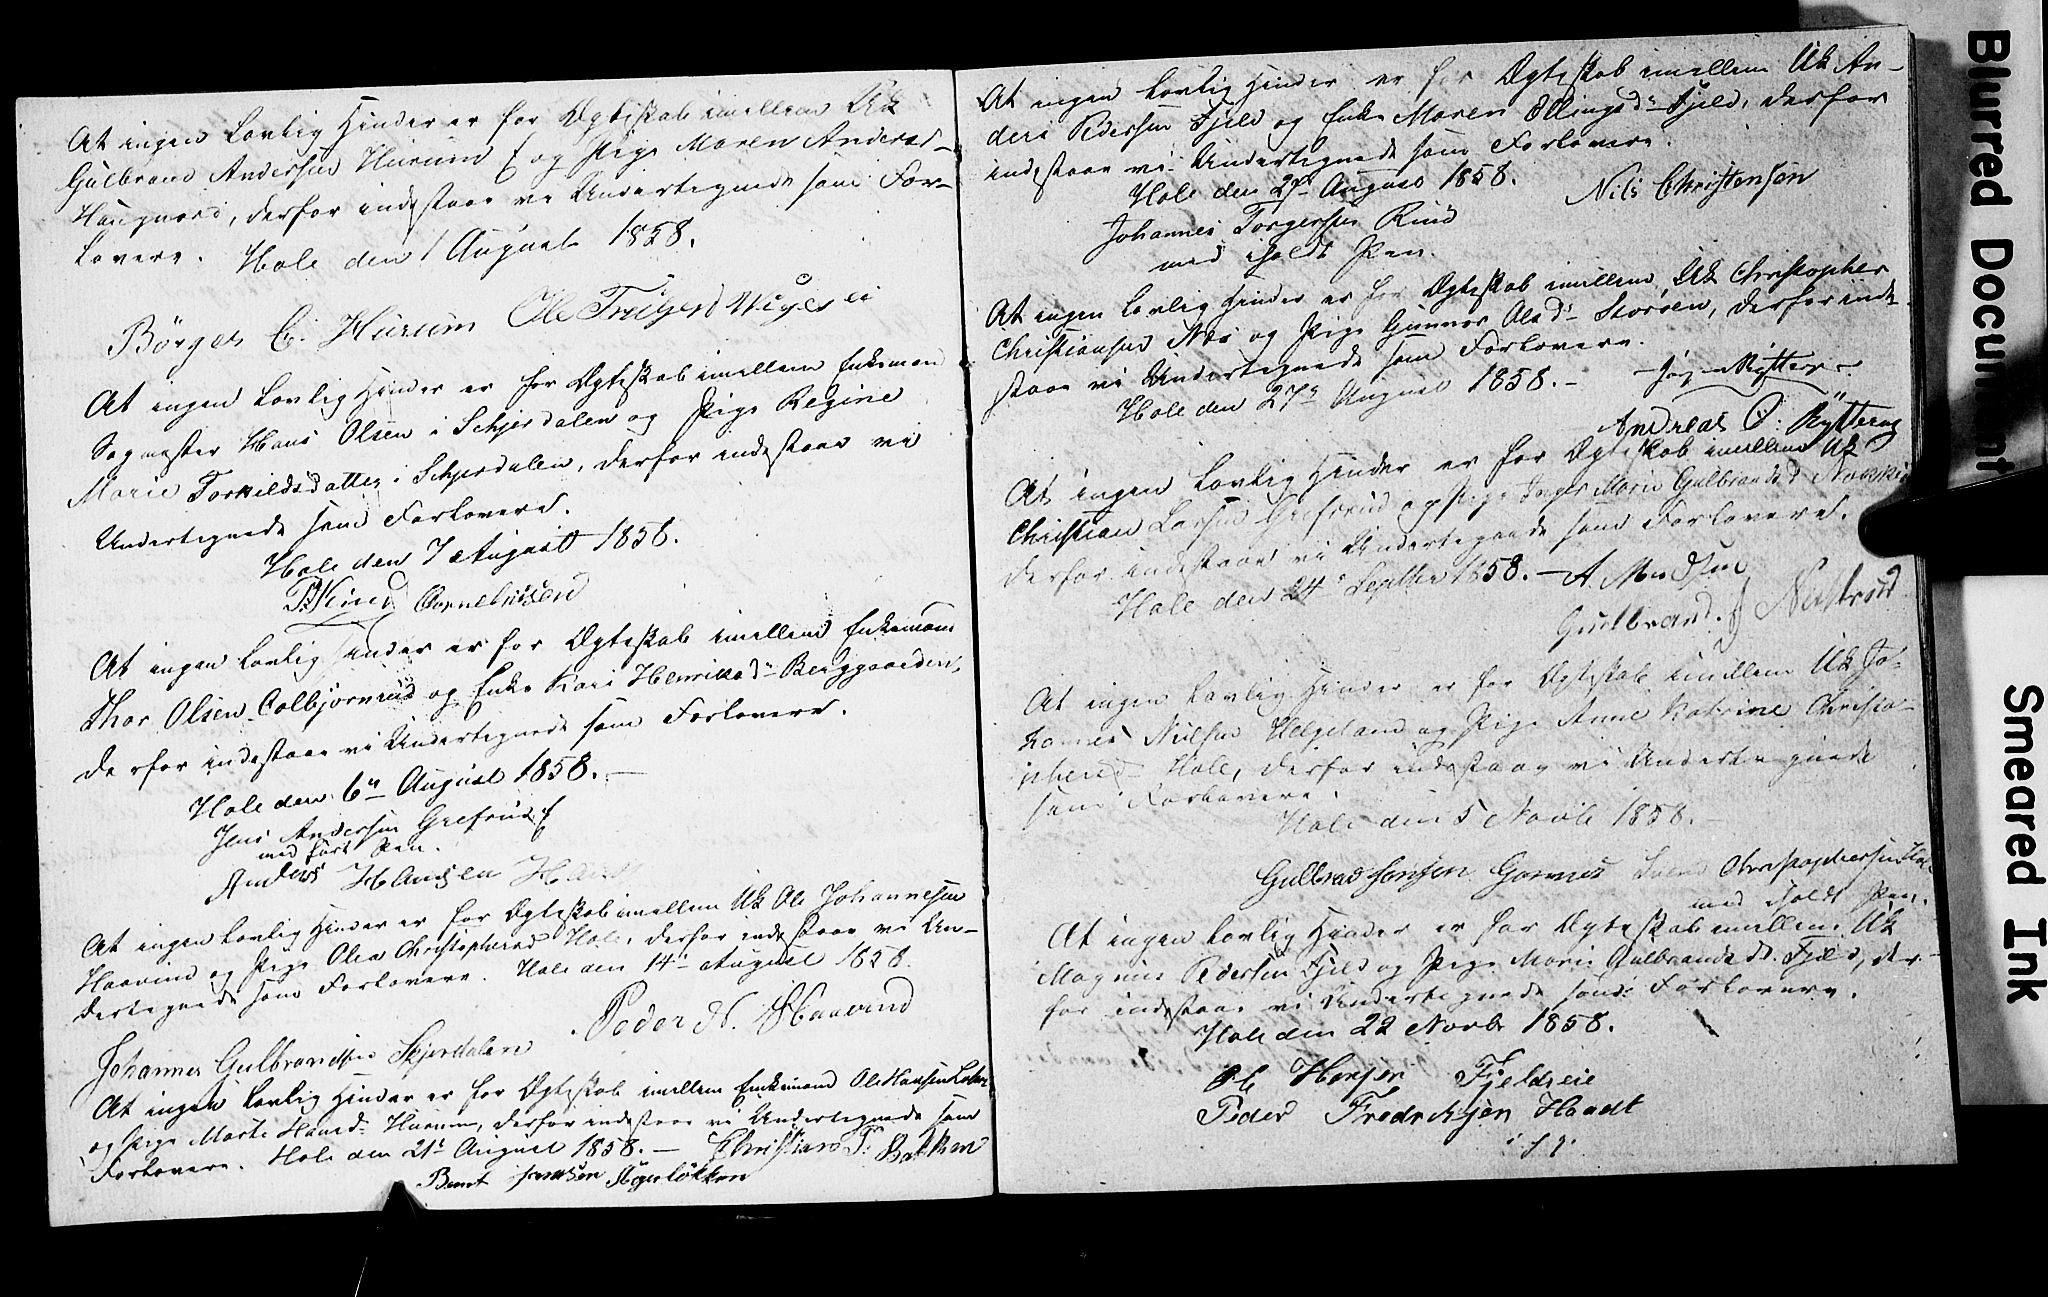 At ingen Lovlig Hinder er for Ægteskab imellem Uk
Gulbrand Andersen Hurum E og Pige Maren Andersd
Haugnord, derfor indestaae vi Undertegnede som For-
lovere. Hole den 1 August 1858.
Börger C. Hurum Ole
At ingen Lovlig Hinder er for Ægteskab imellem Enkemand
Sagmester Hans Olsen i Schjerdalen og Pige Regine
Marie Torkildsdatter i Schjerdalen, derfor indestaae vi
Undertegnede som Forlovere.
Hole den 7 August 1858.
Corneliussen
At ingen Lovlig Hinder er for Ægteskab imellem Enkemand
Thor Olsen Colbjørnrud og Enke Kari Henriksd Berggaarden,
derfor indestaae vi Undertegnede som Forlovere.
Hole den 6te August 1858. —
Jens Andersen Grefsrud E
med ført Pen.
Anders Hansen
At ingen Lovlig Hinder er for Ægteskab imellem Uk Ole Johannesen
Haavind og Pige Olea Christophersd Hole, derfor indestaae vi Un-
dertegnede som Forlovere. Hole den 14de August 1858.
Peder N. Haavind
Johannes Gulbrandsen Skjerdalen
At ingen Lovlig Hinder er for Ægteskab imellem Enkemand Ole Hansen
og Pige Marte Hansd Hurum, derfor indestaae vi Undertegnede som
Forlovere. Hole den 21de August 1858. — Christian T. Bakken
Bernt Jensen Ageløkken
At ingen Lovlig Hinder er for Ægteskab imellem Uk An-
ders Pedersen Fjeld og Enke Maren Ellingsdr Fjeld, derfor
indestaae vi Undertegnede som Forlovere.
Hole den 27de August 1858. Nils Christensen
Johannes Torgersen Rud
med iholdt Pen.
At ingen Lovlig Hinder er for Ægteskab imellem Uk Christopher
Christiansen Næs og Pige Gunnor Olsdr Storøen, derfor inde-
staae vi Undertegnede som Forlovere.
Hole den 27de August 1858. — Jør Rytterag
Andreas O: Rytterag
At ingen Lovlig Hinder er for Ægteskab imellem Uk
Christian Larsen Grefsrud og Pige Inger Marie Gulbrandsd
derfor indestaae vi Undertegnede som Forlovere.
Hole den 24de Septber 1858. — A Madsen
Gullbrand.
At ingen Lovlig Hinder er for Ægteskab imellem Uk Jo-
hannes Nielsen Helgeland og Pige Anne Katrine Christo-
phersd Hole, derfor indestaae vi Undertegnede
som Forlovere.
Hole den 5 Novb 1858. —
Gulbrand Jensen Gomnes Svend Christophersen Hole
med iholdt Pen.
At ingen Lovlig Hinder er for Ægteskab imellem Uk
Magnus Pedersen Fjeld og Pige Marie Gulbrandsdt. Fjeld, der-
for indestaae vi Undertegnede som Forlovere.
Hole den 22 Novbr 1858.
Ole Hansen Fjeldseie
Peder Fredriksen Hondt
Blurred Document
Smeared Ink